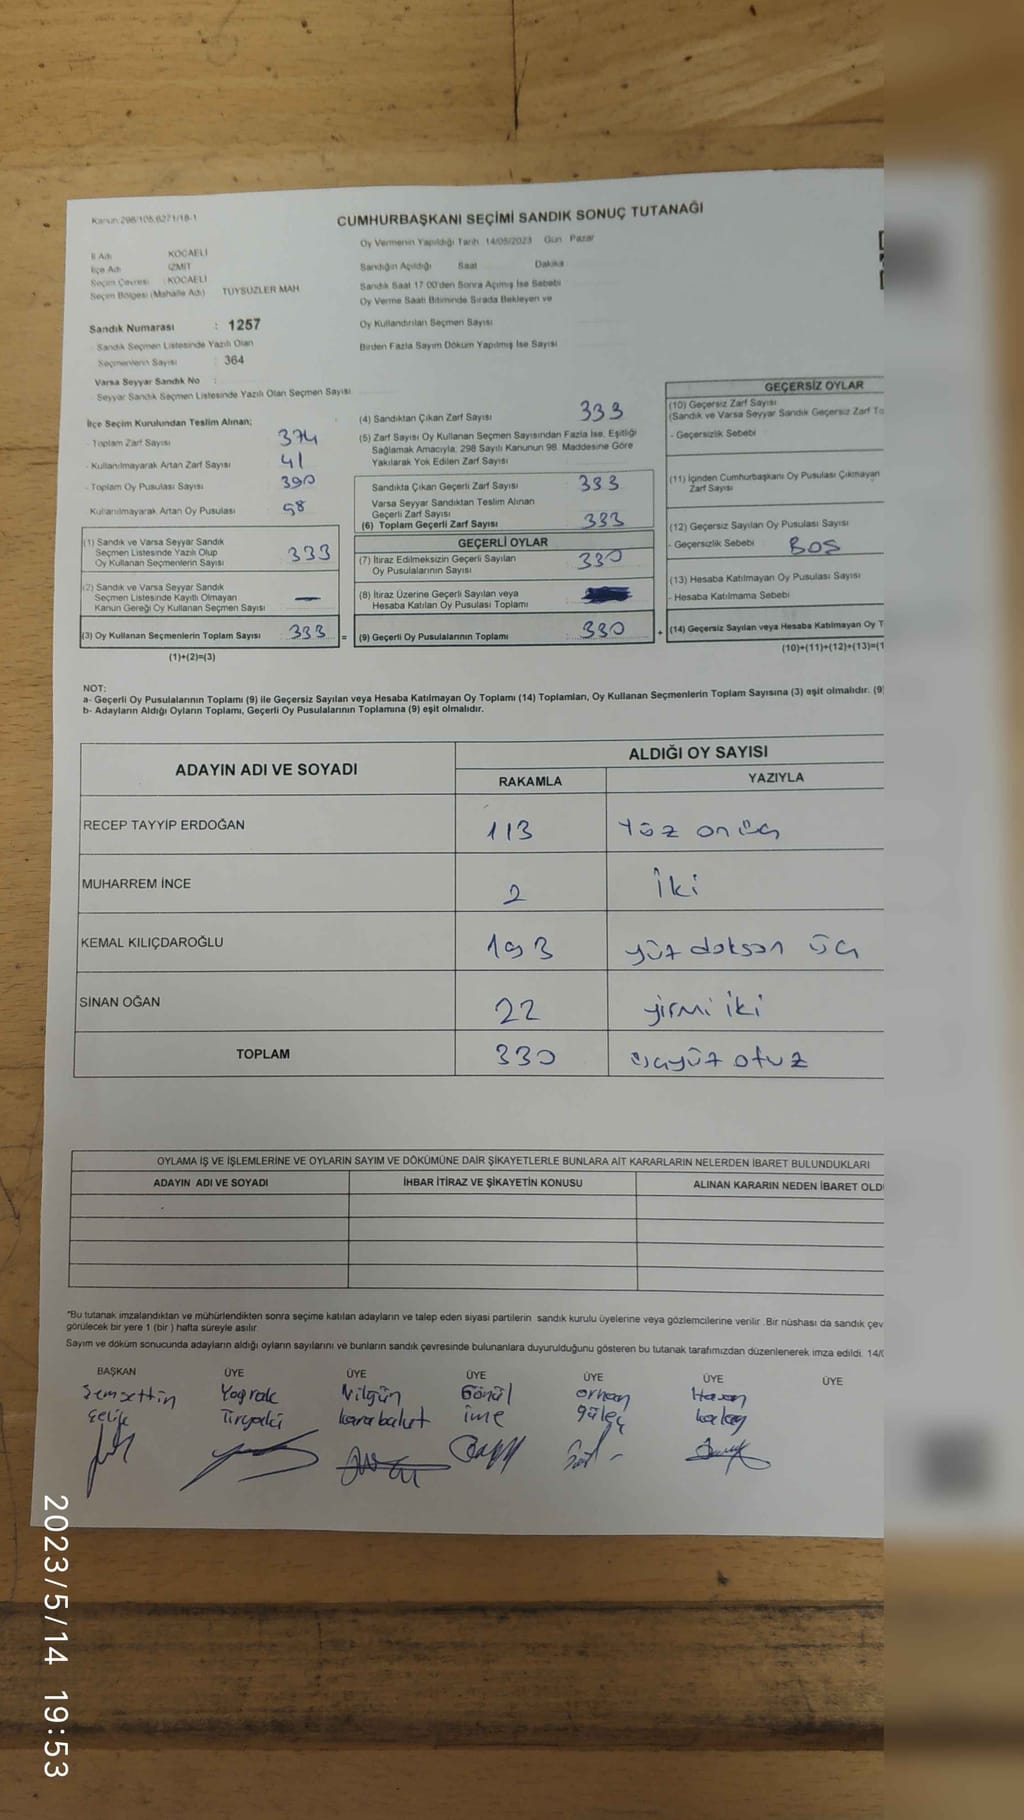 Kanun 298/105,6271/18-1
CUMHURBAŞKANI SEÇİMİ SANDIK SONUÇ TUTANAĞI
Oy Vermenin Yapıldığı Tarih 14/05/2023 Gün Pazar
İl Adı KOCAELİ
İlçe Adı İZMİT
Seçim Çevresi : KOCAELİ
Seçim Bölgesi (Mahalle Adı) TUYSUZLER MAH
Sandığın Açıldığı Saat Dakika
Sandık Saat 17 00'den Sonra Açımış İse Sebebi
Oy Verme Saati Bitiminde Sırada Bekleyen ve
Oy Kullandırılan Seçmen Sayısı
Birden Fazla Sayım Döküm Yapılmış İse Sayısı
Sandık Numarası : 1257
- Sandık Seçmen Listesinde Yazılı Olan
Seçmenlerin Sayısı : 364
Varsa Seyyar Sandık No :
- Seyyar Sandık Seçmen Listesinde Yazılı Olan Seçmen Sayısı
İlçe Seçim Kurulundan Teslim Alınan;
- Toplam Zarf Sayısı 374
- Kullanılmayarak Artan Zarf Sayısı 41
- Toplam Oy Pusulası Sayısı 390
Kullanılmayarak Artan Oy Pusulası
(1) Sandık ve Varsa Seyyar Sandık
Seçmen Listesinde Yazılı Olup
Oy Kullanan Seçmenlerin Sayısı 333
(2) Sandık ve Varsa Seyyar Sandık
Seçmen Listesinde Kayıtlı Olmayan
Kanun Gereği Oy Kullanan Seçmen Sayısı —
(3) Oy Kullanan Seçmenlerin Toplam Sayısı : 333 =
(1)+(2)=(3)
(4) Sandıktan Çıkan Zarf Sayısı 333
(5) Zarf Sayısı Oy Kullanan Seçmen Sayısından Fazla İse, Eşitliği
Sağlamak Amacıyla; 298 Sayılı Kanunun 98. Maddesine Göre
Yakılarak Yok Edilen Zarf Sayısı
Sandıkta Çıkan Geçerli Zarf Sayısı : 333
Varsa Seyyar Sandıktan Teslim Alınan
Geçerli Zarf Sayısı
(6) Toplam Geçerli Zarf Sayısı : 333
GEÇERLİ OYLAR
(7) İtiraz Edilmeksizin Geçerli Sayılan
Oy Pusulalarının Sayısı : 330
(8) İtiraz Üzerine Geçerli Sayılan veya
Hesaba Katılan Oy Pusulası Toplamı
(9) Geçerli Oy Pusulalarının Toplamı : 330 +
GEÇERSİZ OYLAR
(10) Geçersiz Zarf Sayısı
(Sandık ve Varsa Seyyar Sandık Geçersiz Zarf To
- Geçersizlik Sebebi
(11) İçinden Cumhurbaşkanı Oy Pusulası Çıkmayan
Zarf Sayısı
(12) Geçersiz Sayılan Oy Pusulası Sayısı
- Geçersizlik Sebebi BOS
(13) Hesaba Katılmayan Oy Pusulası Sayısı
- Hesaba Katılmama Sebebi
(14) Geçersiz Sayılan veya Hesaba Katılmayan Oy T
(10)+(11)+(12)+(13)=(1
NOT:
a- Geçerli Oy Pusulalarının Toplamı (9) ile Geçersiz Sayılan veya Hesaba Katılmayan Oy Toplamı (14) Toplamları, Oy Kullanan Seçmenlerin Toplam Sayısına (3) eşit olmalıdır. (9
b- Adayların Aldığı Oyların Toplamı, Geçerli Oy Pusulalarının Toplamına (9) eşit olmalıdır.
ADAYIN ADI VE SOYADI ALDIĞI OY SAYISI
RAKAMLA YAZIYLA
RECEP TAYYİP ERDOĞAN 113 Yüz onüç
MUHARREM İNCE 2 İki
KEMAL KILIÇDAROĞLU 193 yüz doksan üç
SİNAN OĞAN 22 yirmi iki
TOPLAM 330 üçyüz otuz
OYLAMA İŞ VE İŞLEMLERİNE VE OYLARIN SAYIM VE DÖKÜMÜNE DAİR ŞİKAYETLERLE BUNLARA AİT KARARLARIN NELERDEN İBARET BULUNDUKLARI
ADAYIN ADI VE SOYADI İHBAR İTİRAZ VE ŞİKAYETİN KONUSU ALINAN KARARIN NEDEN İBARET OLD
"Bu tutanak imzalandıktan ve mühürlendikten sonra seçime katılan adayların ve talep eden siyasi partilerin sandık kurulu üyelerine veya gözlemcilerine verilir. Bir nüshası da sandık çev
görülecek bir yere 1 (bir ) hafta süreyle asılır.
Sayım ve döküm sonucunda adayların aldığı oyların sayılarını ve bunların sandık çevresinde bulunanlara duyurulduğunu gösteren bu tutanak tarafımızdan düzenlenerek imza edildi. 14/0
BAŞKAN ÜYE ÜYE ÜYE ÜYE ÜYE ÜYE
Şemsettin Yaprak Nilgün Gönül orhan Hasan
Çelik Tiryaki karabulut ime güleç
2023/5/14 19:53